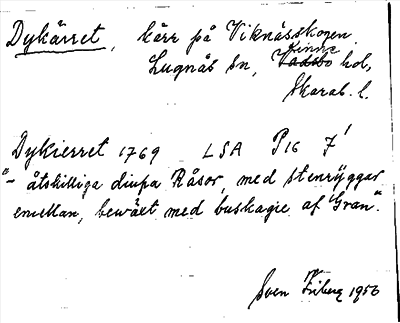 Dykärret, kärr på Viknässkogen
Lugnås sn, Kinne hd,
Skarab. l.
Dykierret 1769 LSA P16 7¹
"- åtskilliga diupa Råsor, med stenryggar
emellan, bewäxt med buskagie af Gran".
Sven Friberg 1956